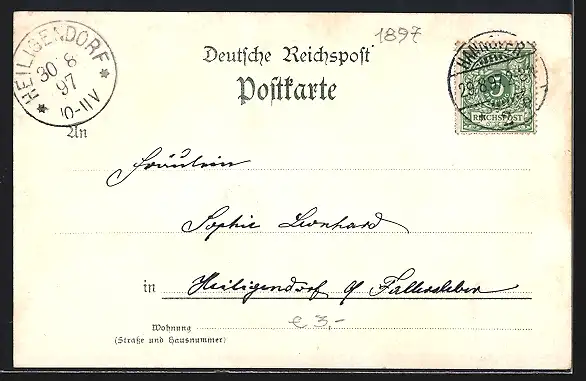 1897
Deutsche Reichspost
Postkarte
HEILIGENDORF
30 8
97
10-11 V
HANNOVER
29.8.97
5
REICHSPOST
An
Fräulein
Sophie Leonhard
in Heiligendorf b/ Fallersleben
Wohnung
(Straße und Hausnummer)
€ 3,-